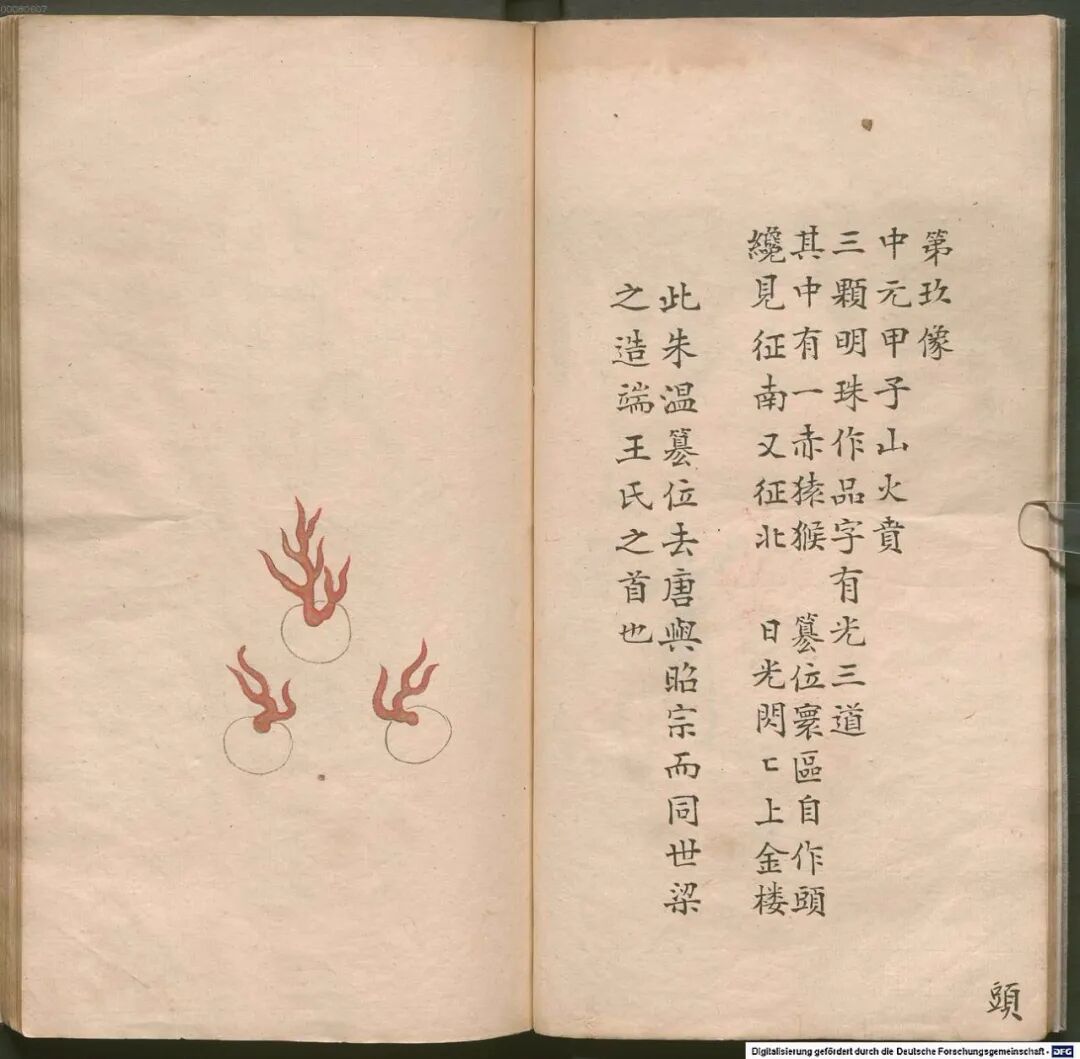 00080607
第玖像
中元甲子山火賁
三顆明珠作品字有光三道
其中有一赤猿猴 篡位寰區自作頭
纔見征南又征北 日光閃ㄈ上金楼
此朱温篡位去唐與昭宗而同世梁
之造端王氏之首也
頭
Digitalisierung gefördert durch die Deutsche Forschungsgemeinschaft - DFG